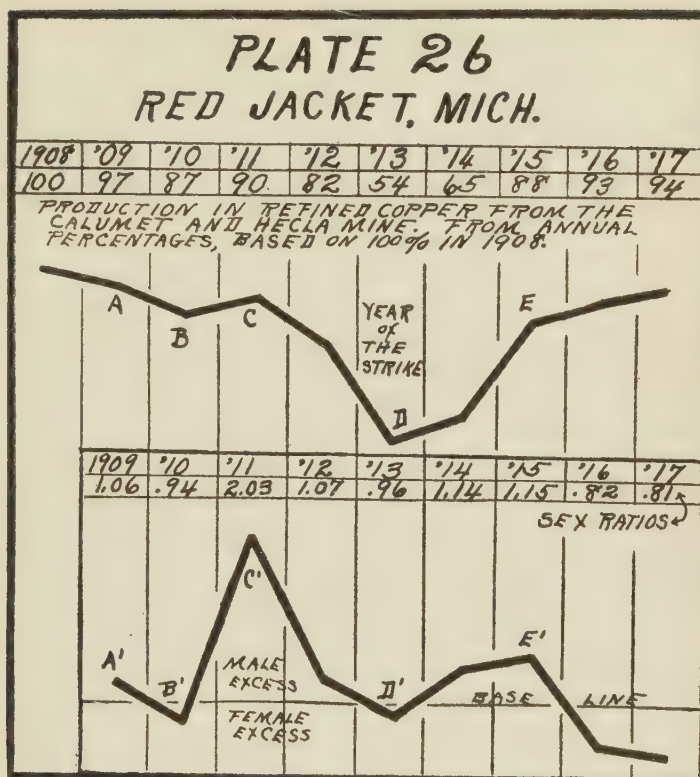 PLATE 26
RED JACKET, MICH.
1908 '09 '10 '11 '12 '13 '14 '15 '16 '17
100 97 87 90. 82 54 65 88 93 94
PRODUCTION IN REFINED COPPER FROM THE
CALUMET AND HECLA MINE. FROM ANNUAL
PERCENTAGES, BASED ON 100% IN 1908.
A
B
C
YEAR
of
THE
STRIKE
D
E
1909 '10 '11 '12 '13 '14 '15 '16 '17
1.06 .94 2.03 1.07 .96 1.14 1.15 .82 .81
SEX RATIOS
A'
B'
C'
MALE
EXCESS
FEMALE
EXCESS
D'
E'
BASE LINE